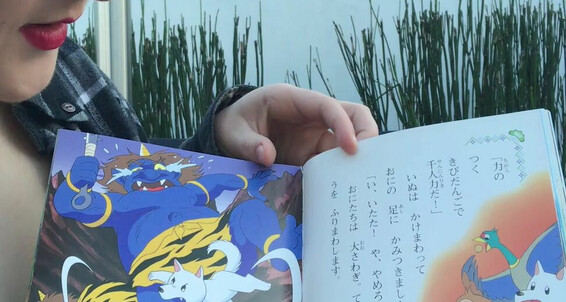 「力の
つく
きびだんごで
千人力だ!」
いぬは かけまわって
おにの 足に かみつきまし
「い、いたた! や、やめろ
おにたちは 大さわぎ。て
うを ふりまわします。